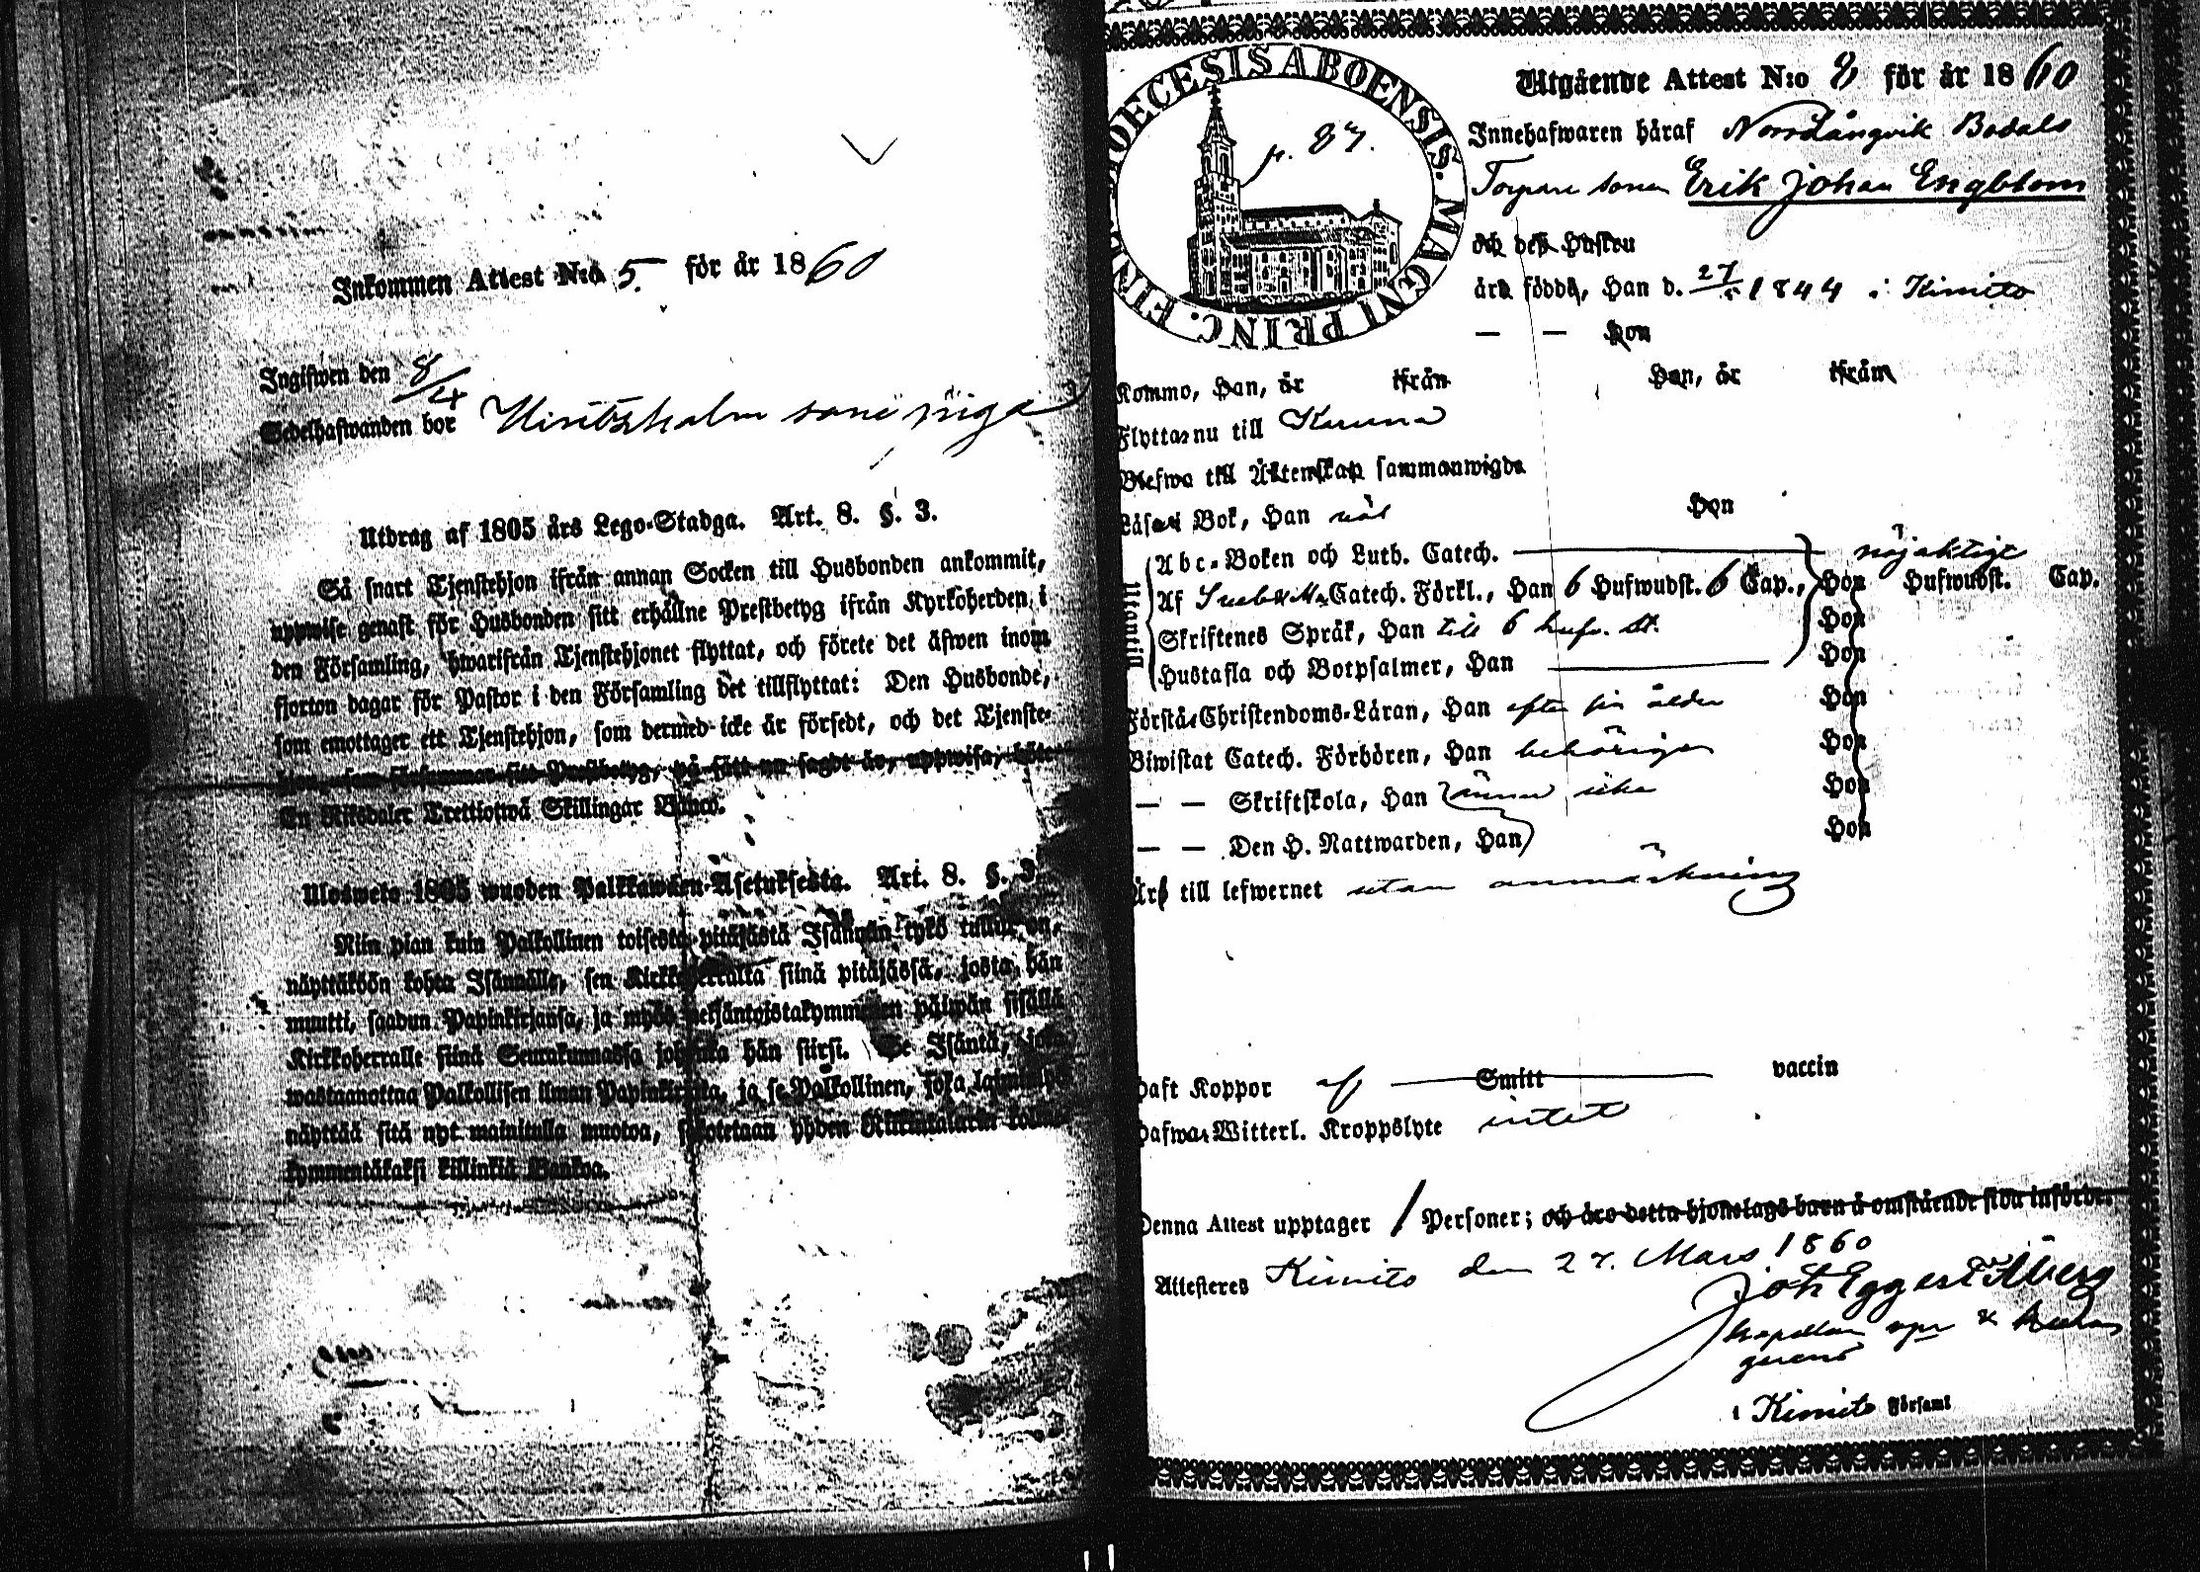 Inkommen Attest N:o 5. för år 1860
Ingifwen den 8/4
Sedelhafwanden bor
Utdrag af 1805 års Lego-Stadga. Art. 8. §. 3.
Så snart Tjenstehjon ifrån annan Socken till Husbonden ankommit,
uppwise genast för Husbonden sitt erhållne Prestbetyg ifrån Kyrkoherden i
den Församling, hwarifrån Tjenstehjonet flyttat, och förete det äfwen inom
fjorton dagar för Pastor i den Församling det tillflyttat: Den Husbonde,
som emottager ett Tjenstehjon, som dermed icke är försedt, och det Tjenste-
hjon, som försummar sitt Prestbetyg, på sätt nu sagdt är, uppwisa, böte
En Riksdaler Trettiotwå Skillingar Banco.
Ulosweto 1805 wuoden Palkkawäen-Asetuksesta. Art. 8. §. 3.
Niin pian kuin Palkollinen toisesta pitäjästä Isännän tykö tullut on,
näyttäköön kohta Isännälle, sen Kirkkoherralta siinä pitäjässä, josta hän
muutti, saadun Papinkirjansa, ja myös neljäntoistakymmenen päiwän sisällä
Kirkkoherralle siinä Seurakunnassa johonka hän siirsi. Se Isäntä, joka
wastaanottaa Palkollisen ilman Papinkirjata, ja se Palkollinen, joka
näyttää sitä nyt mainitulla muotoa, sakotetaan yhden
kymmentäkaksi killinkiä Bankoa.
FINL. DIOECESIS ABOENSIS. MAGNI PRINC.
p. 87.
Utgående Attest N:o 8 för år 1860
Innehafwaren häraf Norrlångvik Bodals
Torpare sonen Erik Johan Engblom
och des Hustru
äro födde, Han d. 27/5 1844 i Kimito
— — Hon
Kommo, Han, år ifrån Hon, år ifrån
Flyttas nu till Karuna
Blefwo till Äktenskap sammanwigde
Läsa i Bok, Han väl Hon
Utantill
Abc-Boken och Luth. Catech. nöjaktigt
Af Catech. Förkl., Han 6 Hufwudst. 6 Cap., Hon Hufwudst. Cap.
Skriftenes Språk, Han till 6 hufv. st. Hon
Hustafla och Botpsalmer, Han Hon
Förstå Christendoms-Läran, Han efter sin ålder Hon
Biwistat Catech. Förhören, Han behörigen Hon
— — Skriftskola, Han ännu icke Hon
— — Den H. Nattwarden, Han Hon
Äro till lefwernet utan anmärkning
Haft Koppor af Smitt vaccin
Hafwa Witterl. Kroppslyte intet
Denna Attest upptager 1 Personer; och äro detta hjonelags barn å omstående sida införde.
Attesteres Kimito den 27. Mars 1860
Joh Eggert Åberg
Kapellan
i Kimito Församl